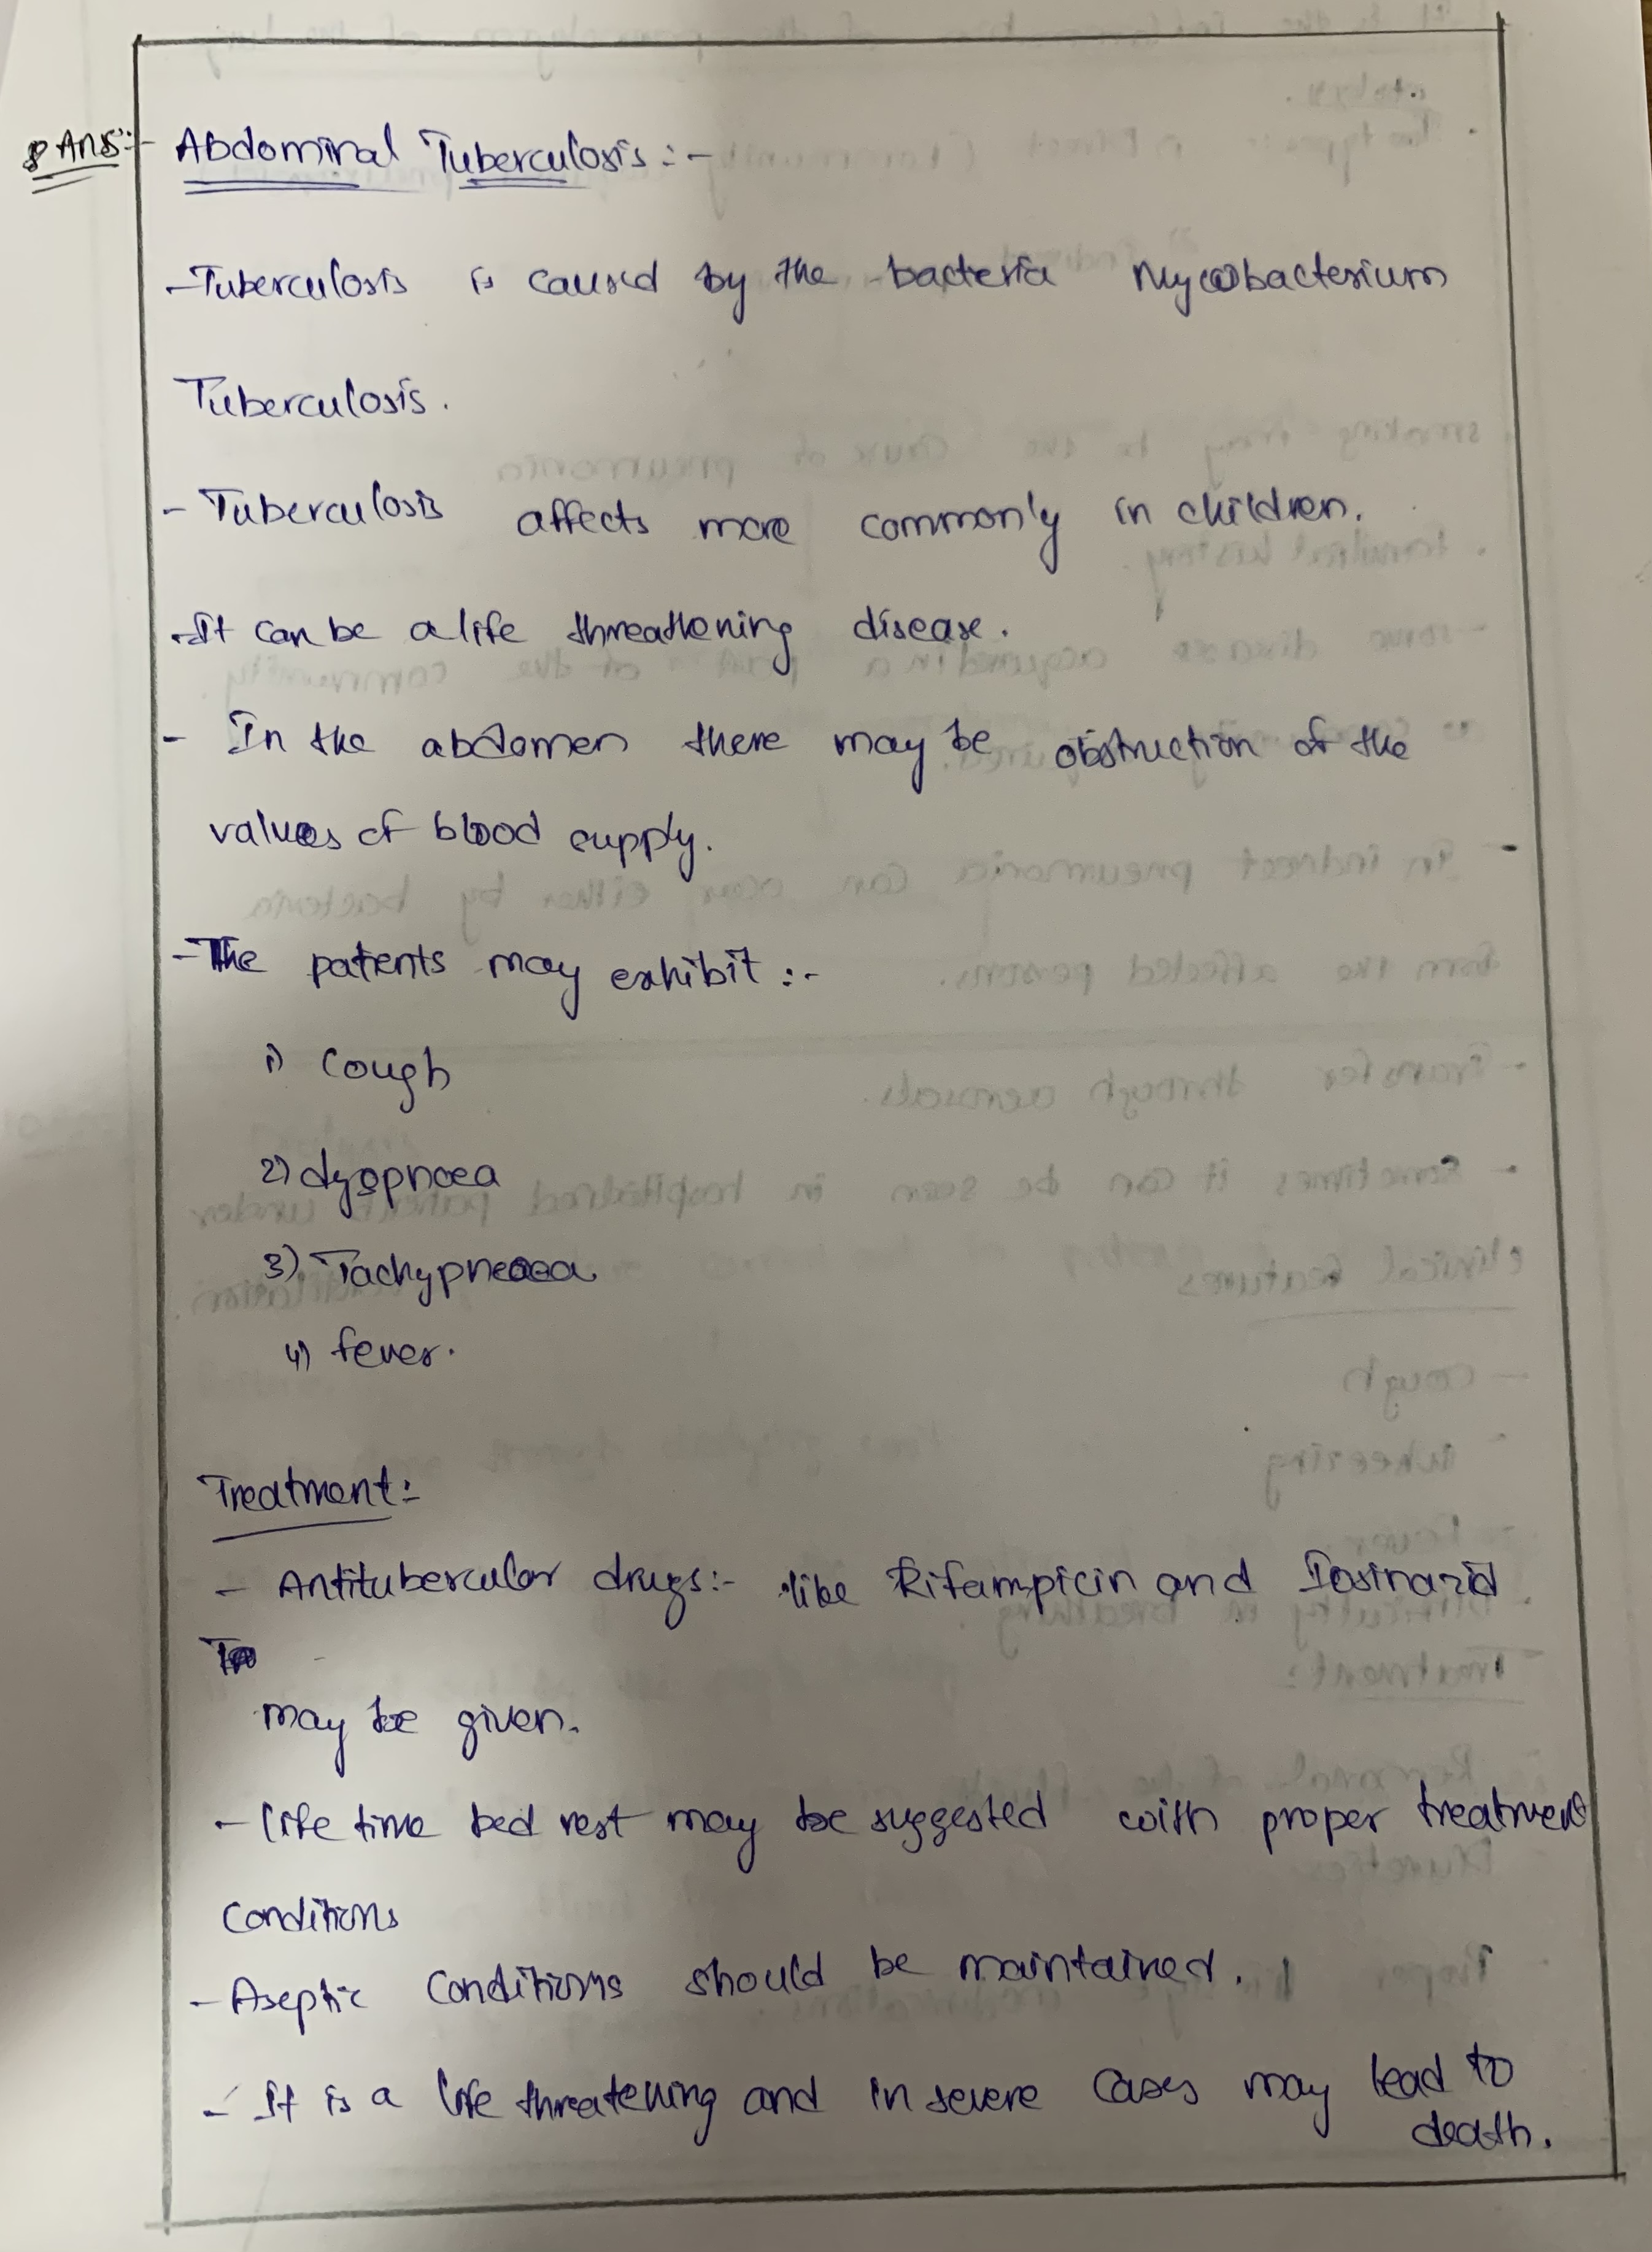 8 Ans:-
Abdominal Tuberculosis :-
- Tuberculosis is caused by the bacteria Mycobacterium
Tuberculosis.
- Tuberculosis affects more commonly in children.
- It can be a life threathening disease.
- In the abdomen there may be obstruction of the
values of blood supply.
- The patients may exhibit :-
1) Cough
2) dyspnoea
3) Tachypneoea
4) fever.
Treatment:-
- Antitubercular drugs:- like Rifampicin and Iosinazid
may be given.
- life time bed rest may be suggested with proper treatment
Conditions
- Aseptic Conditions should be maintained.
- It is a life threatening and in severe Cases may lead to
death.